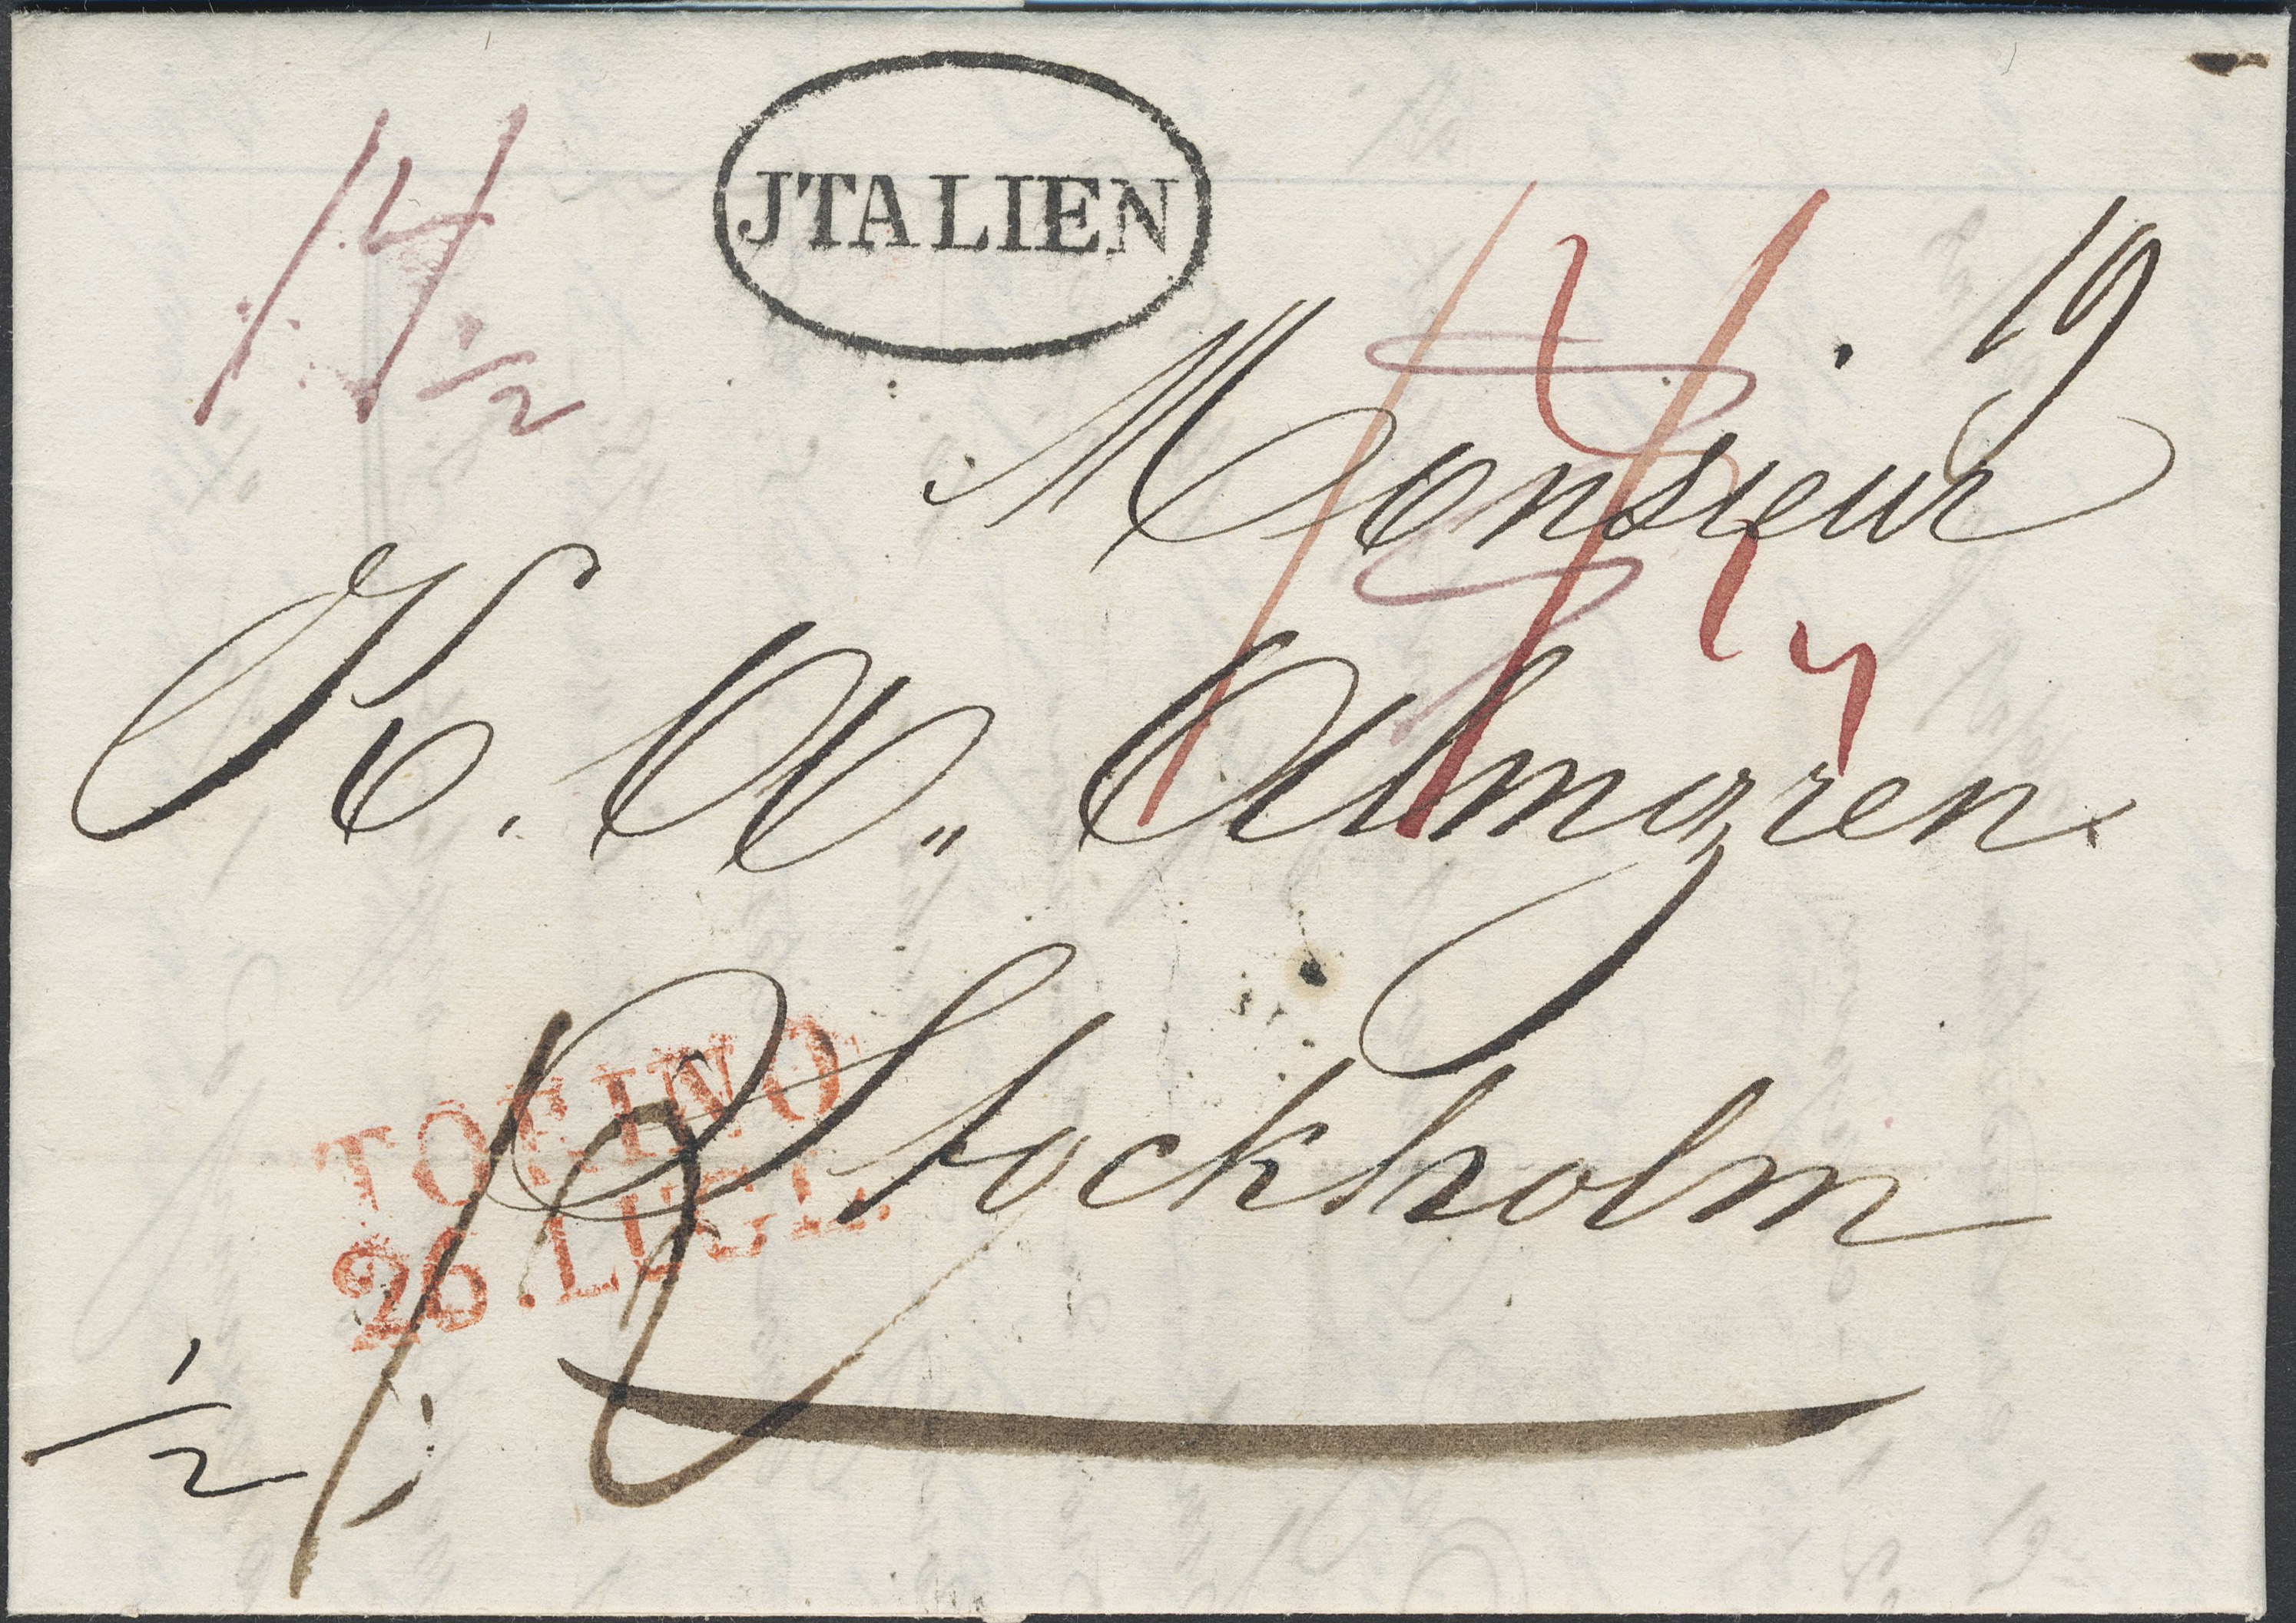 14 1/2
JTALIEN
19
Monsieur
K. A. Almgren
Stockholm
TORINO
26 .LUGL.
1/2